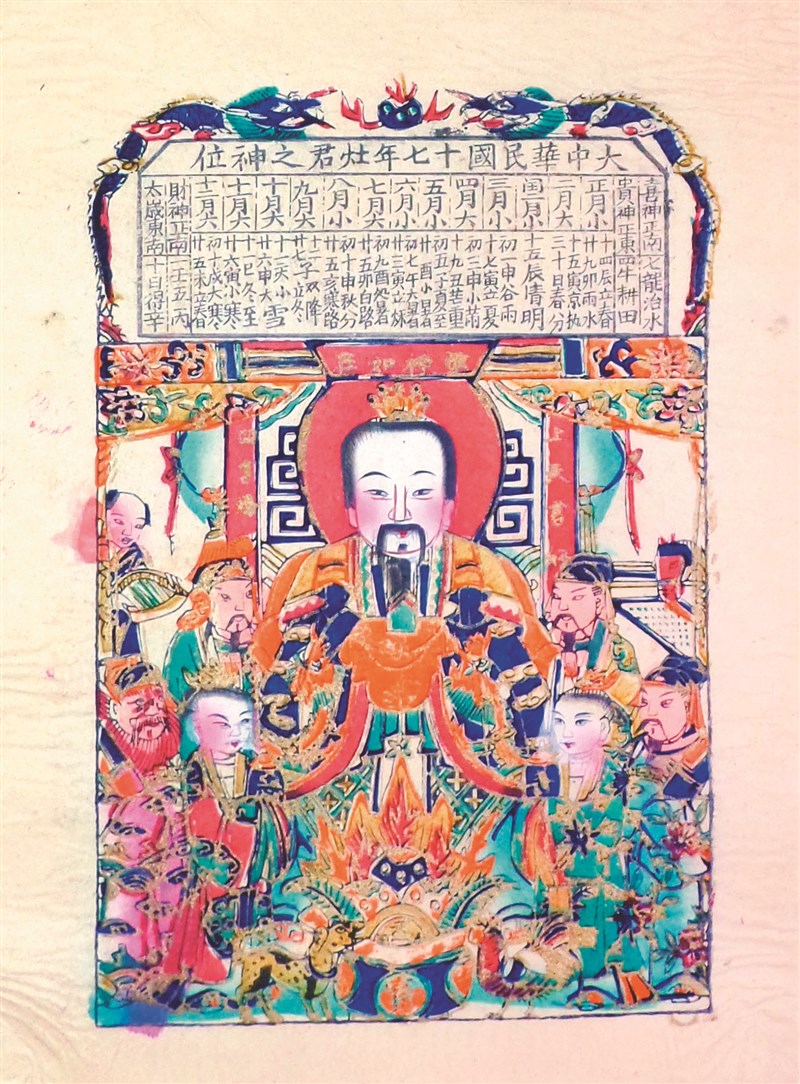 大中華民國十七年灶君之神位
喜神正南七龍治水
貴神正東四牛耕田
正月小
十四辰立春
廿九卯雨水
二月大
十五寅京执
三十日春分
閏二月小
十五辰青明
三月小
初一申谷雨
十七寅立夏
四月大
初三申小
十九丑芒重
五月小
初五子夏至
廿酉小暑
六月小
初七午大暑
廿三寅立秋
七月小
初九酉処暑
廿五卯白路
八月小
初十申秋分
廿五亥寒路
九月大
十二子双降
廿七立冬
十月大
十二小雪
廿六申大雪
十一月大
十一巳冬至
廿六寅小寒
十二月大
初十戌大寒
廿五未立春
財神正南一壬五丙
太歲東南十日得辛